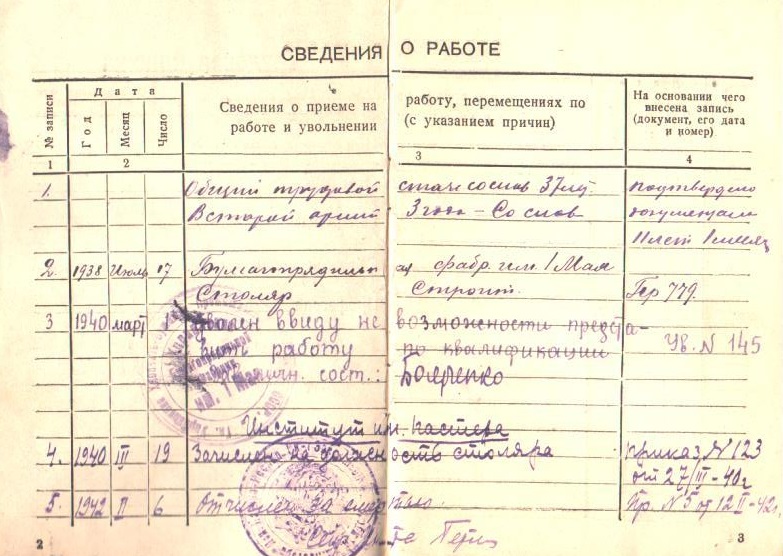 СВЕДЕНИЯ О РАБОТЕ
№ записи
Дата
Год
Месяц
Число
Сведения о приеме на работу, перемещениях по
работе и увольнении (с указанием причин)
На основании чего
внесена запись
(документ, его дата
и номер)
1 2 3 4
1. Общий трудовой стаж со слов 37 лет. подтверждено
В старой армии 3 года – Со слов документами
Нлет 1 месяц
2. 1938 Июль 17 Бумагопрядильная фабр. им. 1 Мая
Столяр Строит. Гер 779.
3 1940 март Уволен ввиду невозможности предста-
вить работу по квалификации Ув. N 145
сост.: Бояренко
Институт им. Пастера
4. 1940 III 19 Зачислен на должность столяра приказ N 123
от 27/III-40г
5. 1942 II 6 Отчислен за смертью Пр. N 5 от 12 II-42г.
2 3